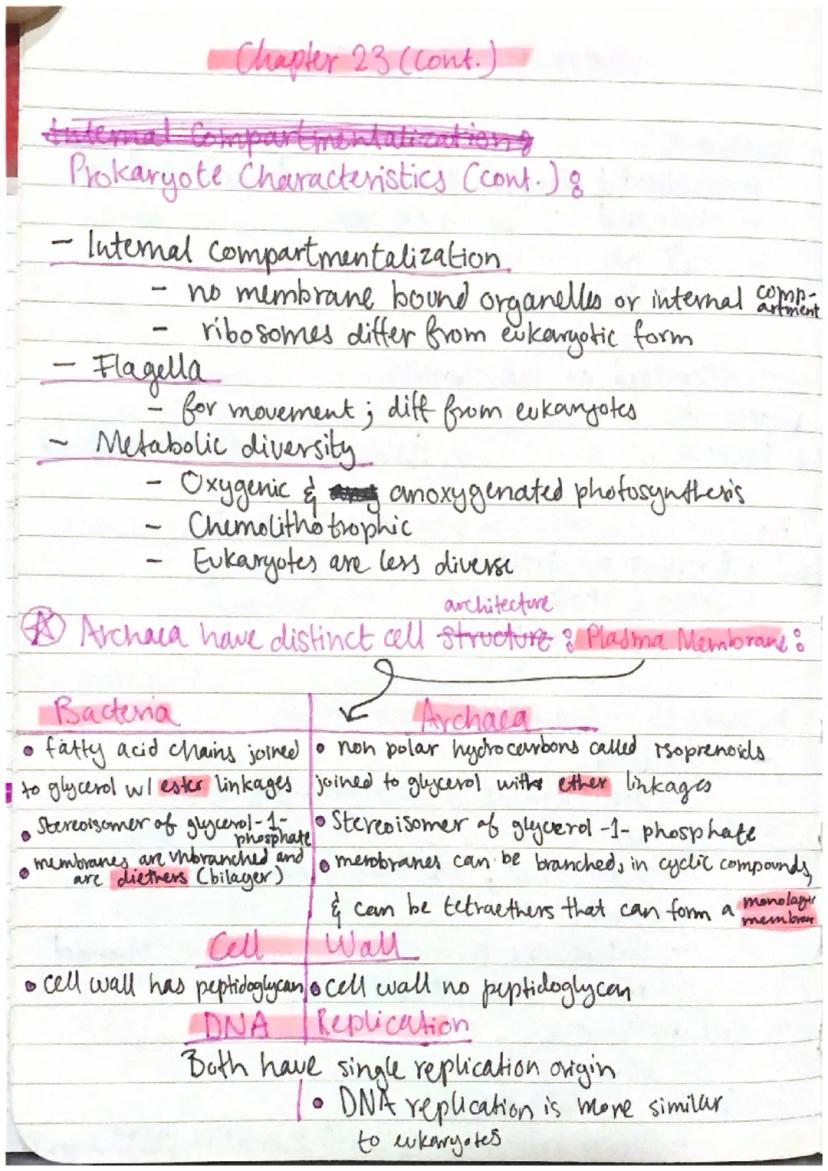 Chapter 23 (cont.)
Internal Compartmentalization:
Prokaryote Characteristics (cont.):
- Internal compartmentalization
- no membrane bound organelles or internal comp-
artment
- ribosomes differ from eukaryotic form
- Flagella
- for movement; diff from eukaryotes
- Metabolic diversity
- Oxygenic & anoxygenated photosynthesis
- Chemolithotrophic
- Eukaryotes are less diverse
architecture
Archaea have distinct cell structure: Plasma Membrane:
Bacteria
• fatty acid chains joined
to glycerol w/ ester linkages
• Stereoisomer of glycerol-1-
phosphate
• membranes are unbranched and
are diethers (bilayer)
Archaea
• non polar hydrocarbons called isoprenoids
joined to glycerol with ether linkages
• Stereoisomer of glycerol-1-phosphate
• membranes can be branched, in cyclic compounds,
& can be tetraethers that can form a monolayer
membrane
Cell Wall
• cell wall has peptidoglycan
• cell wall no peptidoglycan
DNA Replication
Both have single replication origin
• DNA replication is more similar
to eukaryotes